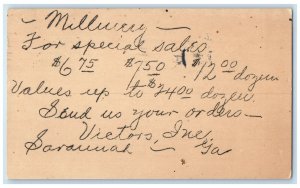 - Millinery -
For special sales.
$6.75 $7.50 $12.00 dozen
Values up to $24.00 dozen.
Send us your orders -
Victors, Inc.
Savannah - Ga